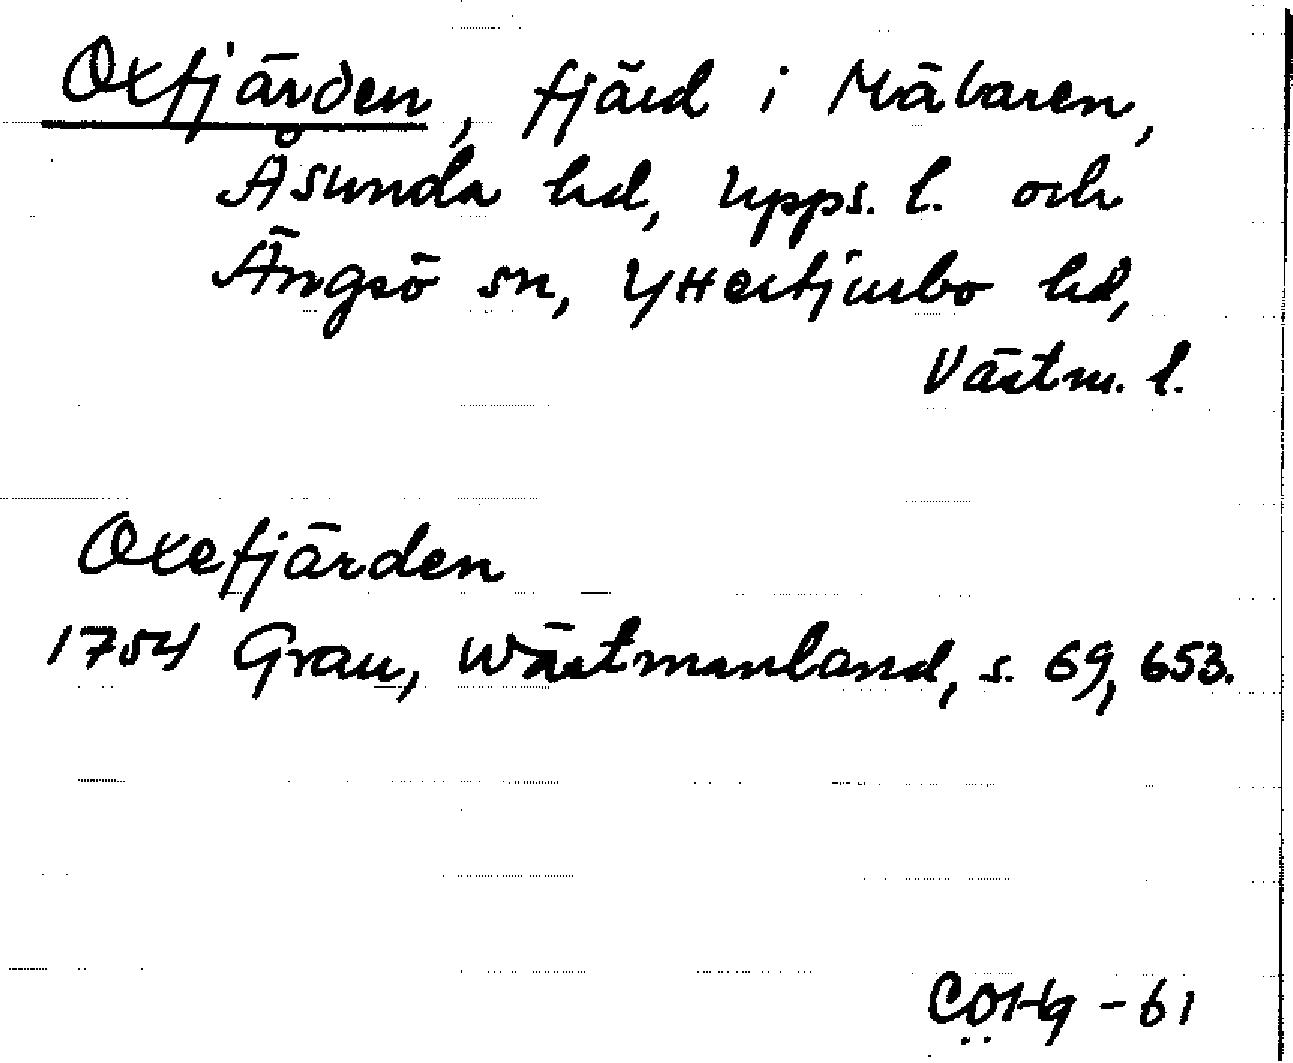 Oxfjärden, fjärd i Mälaren,
Åsunda hd, Upps. l. och
Ängsö sn, Yttertjurbo hd,
Västm. l.
Oxefjärden
1754 Grau, Wästmanland, s. 69, 653.
-61